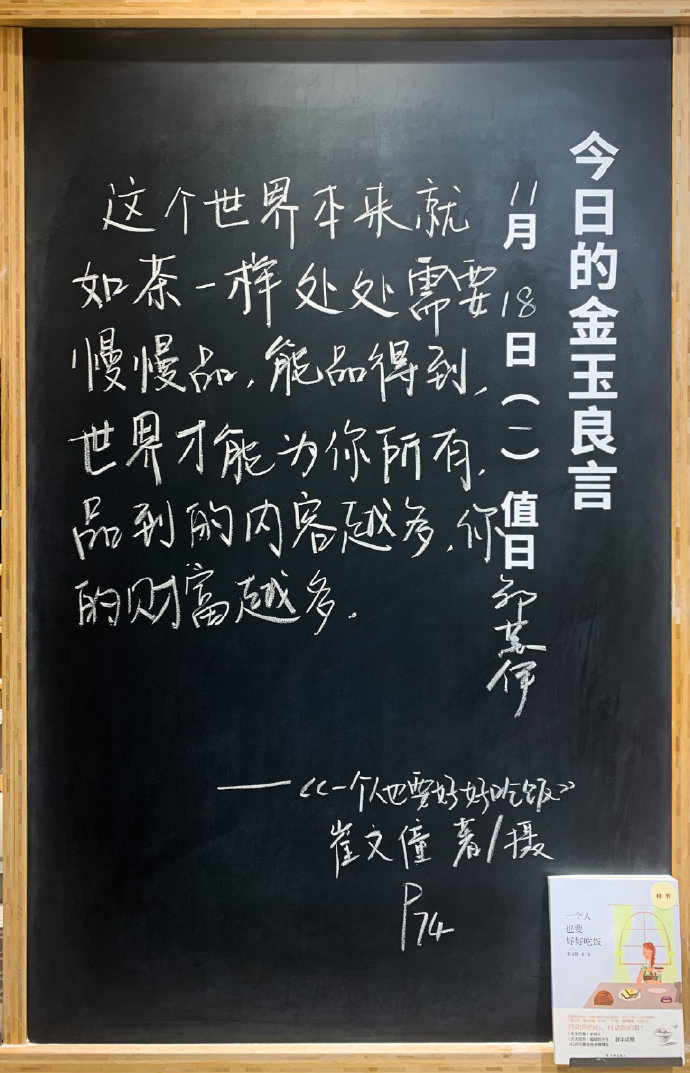 今日的金玉良言
11月18日（一）值日
这个世界本来就
如茶一样处处需要
慢慢品，能品得到，
世界才能为你所有，
品到的内容越多，你
的财富越多．
——《一个人也要好好吃饭》
崔文僮 著/摄
P74
样书
一个人
也要
好好吃饭
打动你的心，打动你的胃！